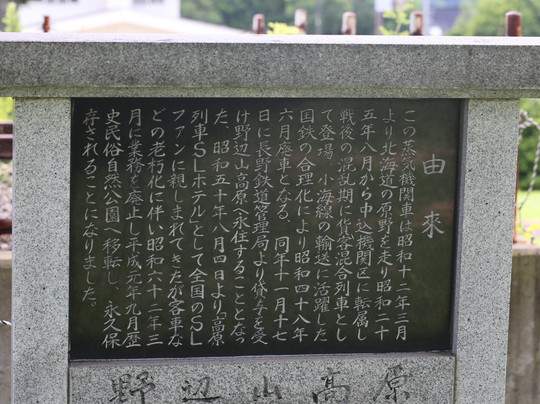 由来
この蒸気機関車は昭和十二年三月
より北海道の原野を走り昭和二十
五年八月から中込機関区に転属し
戦後の混乱期に貨客混合列車とし
て登場 小海線の輸送に活躍した
国鉄の合理化により昭和四十八年
六月廃車となる 同年十一月十七
日に長野鉄道管理局より貸与を受
け野辺山高原へ永住することとなっ
た 昭和五十年八月四日より「高原
列車SLホテル」として全国のSL
ファンに親しまれてきたが客車な
どの老朽化に伴い昭和六十二年三
月に業務を廃止し平成元年九月歴
史民俗自然公園へ移転し 永久保
存されることになりました。
野辺山高原